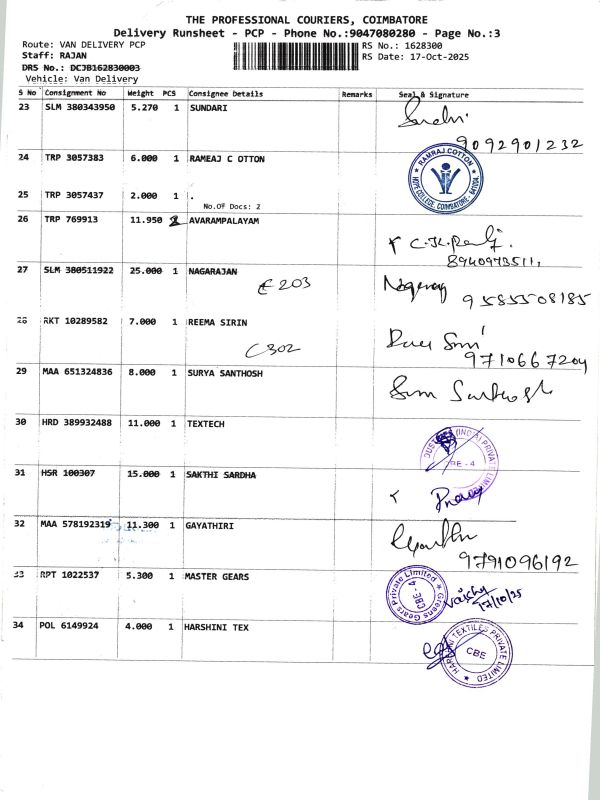 THE PROFESSIONAL COURIERS, COIMBATORE
Delivery Runsheet - PCP - Phone No.:9047080280 - Page No.:3
Route: VAN DELIVERY PCP RS No.: 1628300
Staff: RAJAN RS Date: 17-Oct-2025
DRS No.: DCJB162830003
Vehicle: Van Delivery
S No Consignment No Weight PCS Consignee Details Remarks Seal & Signature
23 SLM 380343950 5.270 1 SUNDARI
9092901232
24 TRP 3057383 6.000 1 RAMEAJ C OTTON
RAMRAJ COTTON
HOPE COLLEGE, COIMBATORE
25 TRP 3057437 2.000 1 .
No.OF Docs: 2
26 TRP 769913 11.950 AVARAMPALAYAM
8940973511,
27 SLM 380511922 25.000 1 NAGARAJAN
E 203
9585508185
28 RKT 10289582 7.000 1 REEMA SIRIN
C 302
9710667204
29 MAA 651324836 8.000 1 SURYA SANTHOSH
30 HRD 389932488 11.000 1 TEXTECH
(INDIA) PRIVATE LIMITED
31 HSR 100307 15.000 1 SAKTHI SARDHA
32 MAA 578192319 11.300 1 GAYATHIRI
9791096192
33 RPT 1022537 5.300 1 MASTER GEARS
Greens Gears Private Limited
17/10/25
34 POL 6149924 4.000 1 HARSHINI TEX
TEXTILES PRIVATE LIMITED
CBE